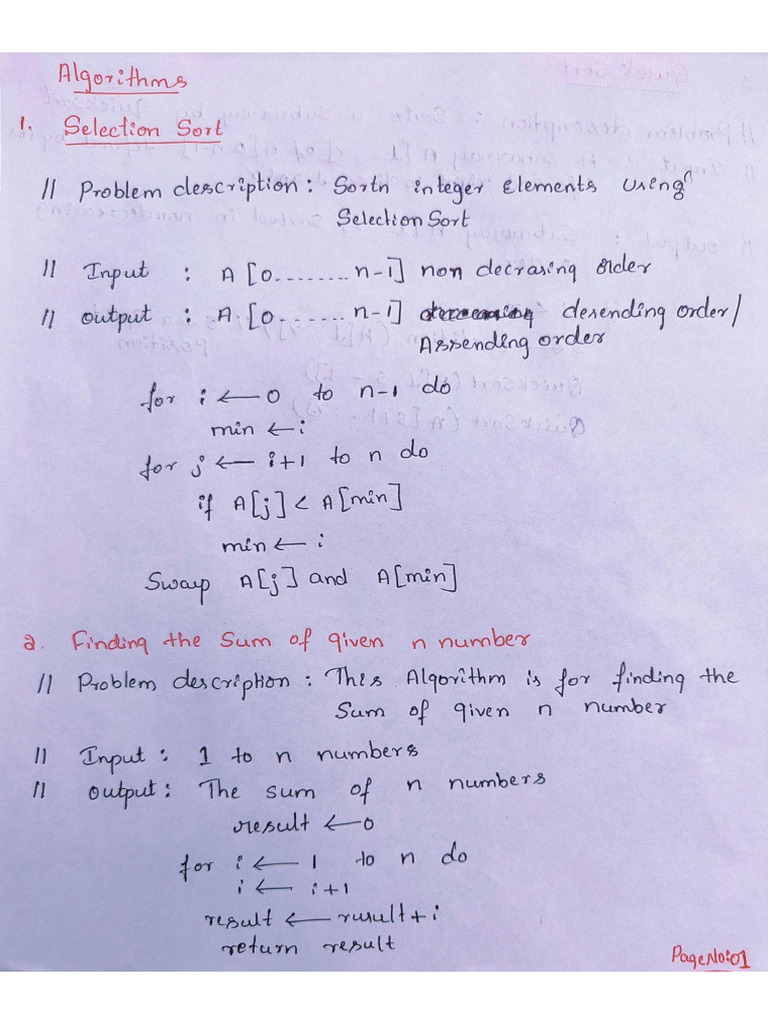 Algorithms
1. Selection Sort
// Problem description : Sortn integer Elements using
Selection Sort
// Input : A [0........n-1] non decrasing order
// output : A [0.......n-1] desending order/
Assending order
for i ← 0 to n-1 do
min ← i
for j ← i+1 to n do
if A[j] < A[min]
min ← i
Swap A[j] and A[min]
2. Finding the Sum of given n number
// Problem description : This Algorithm is for finding the
Sum of given n number
// Input : 1 to n numbers
// output : The sum of n numbers
result ← 0
for i ← 1 to n do
i ← i+1
result ← rusult + i
return result
Page No:01